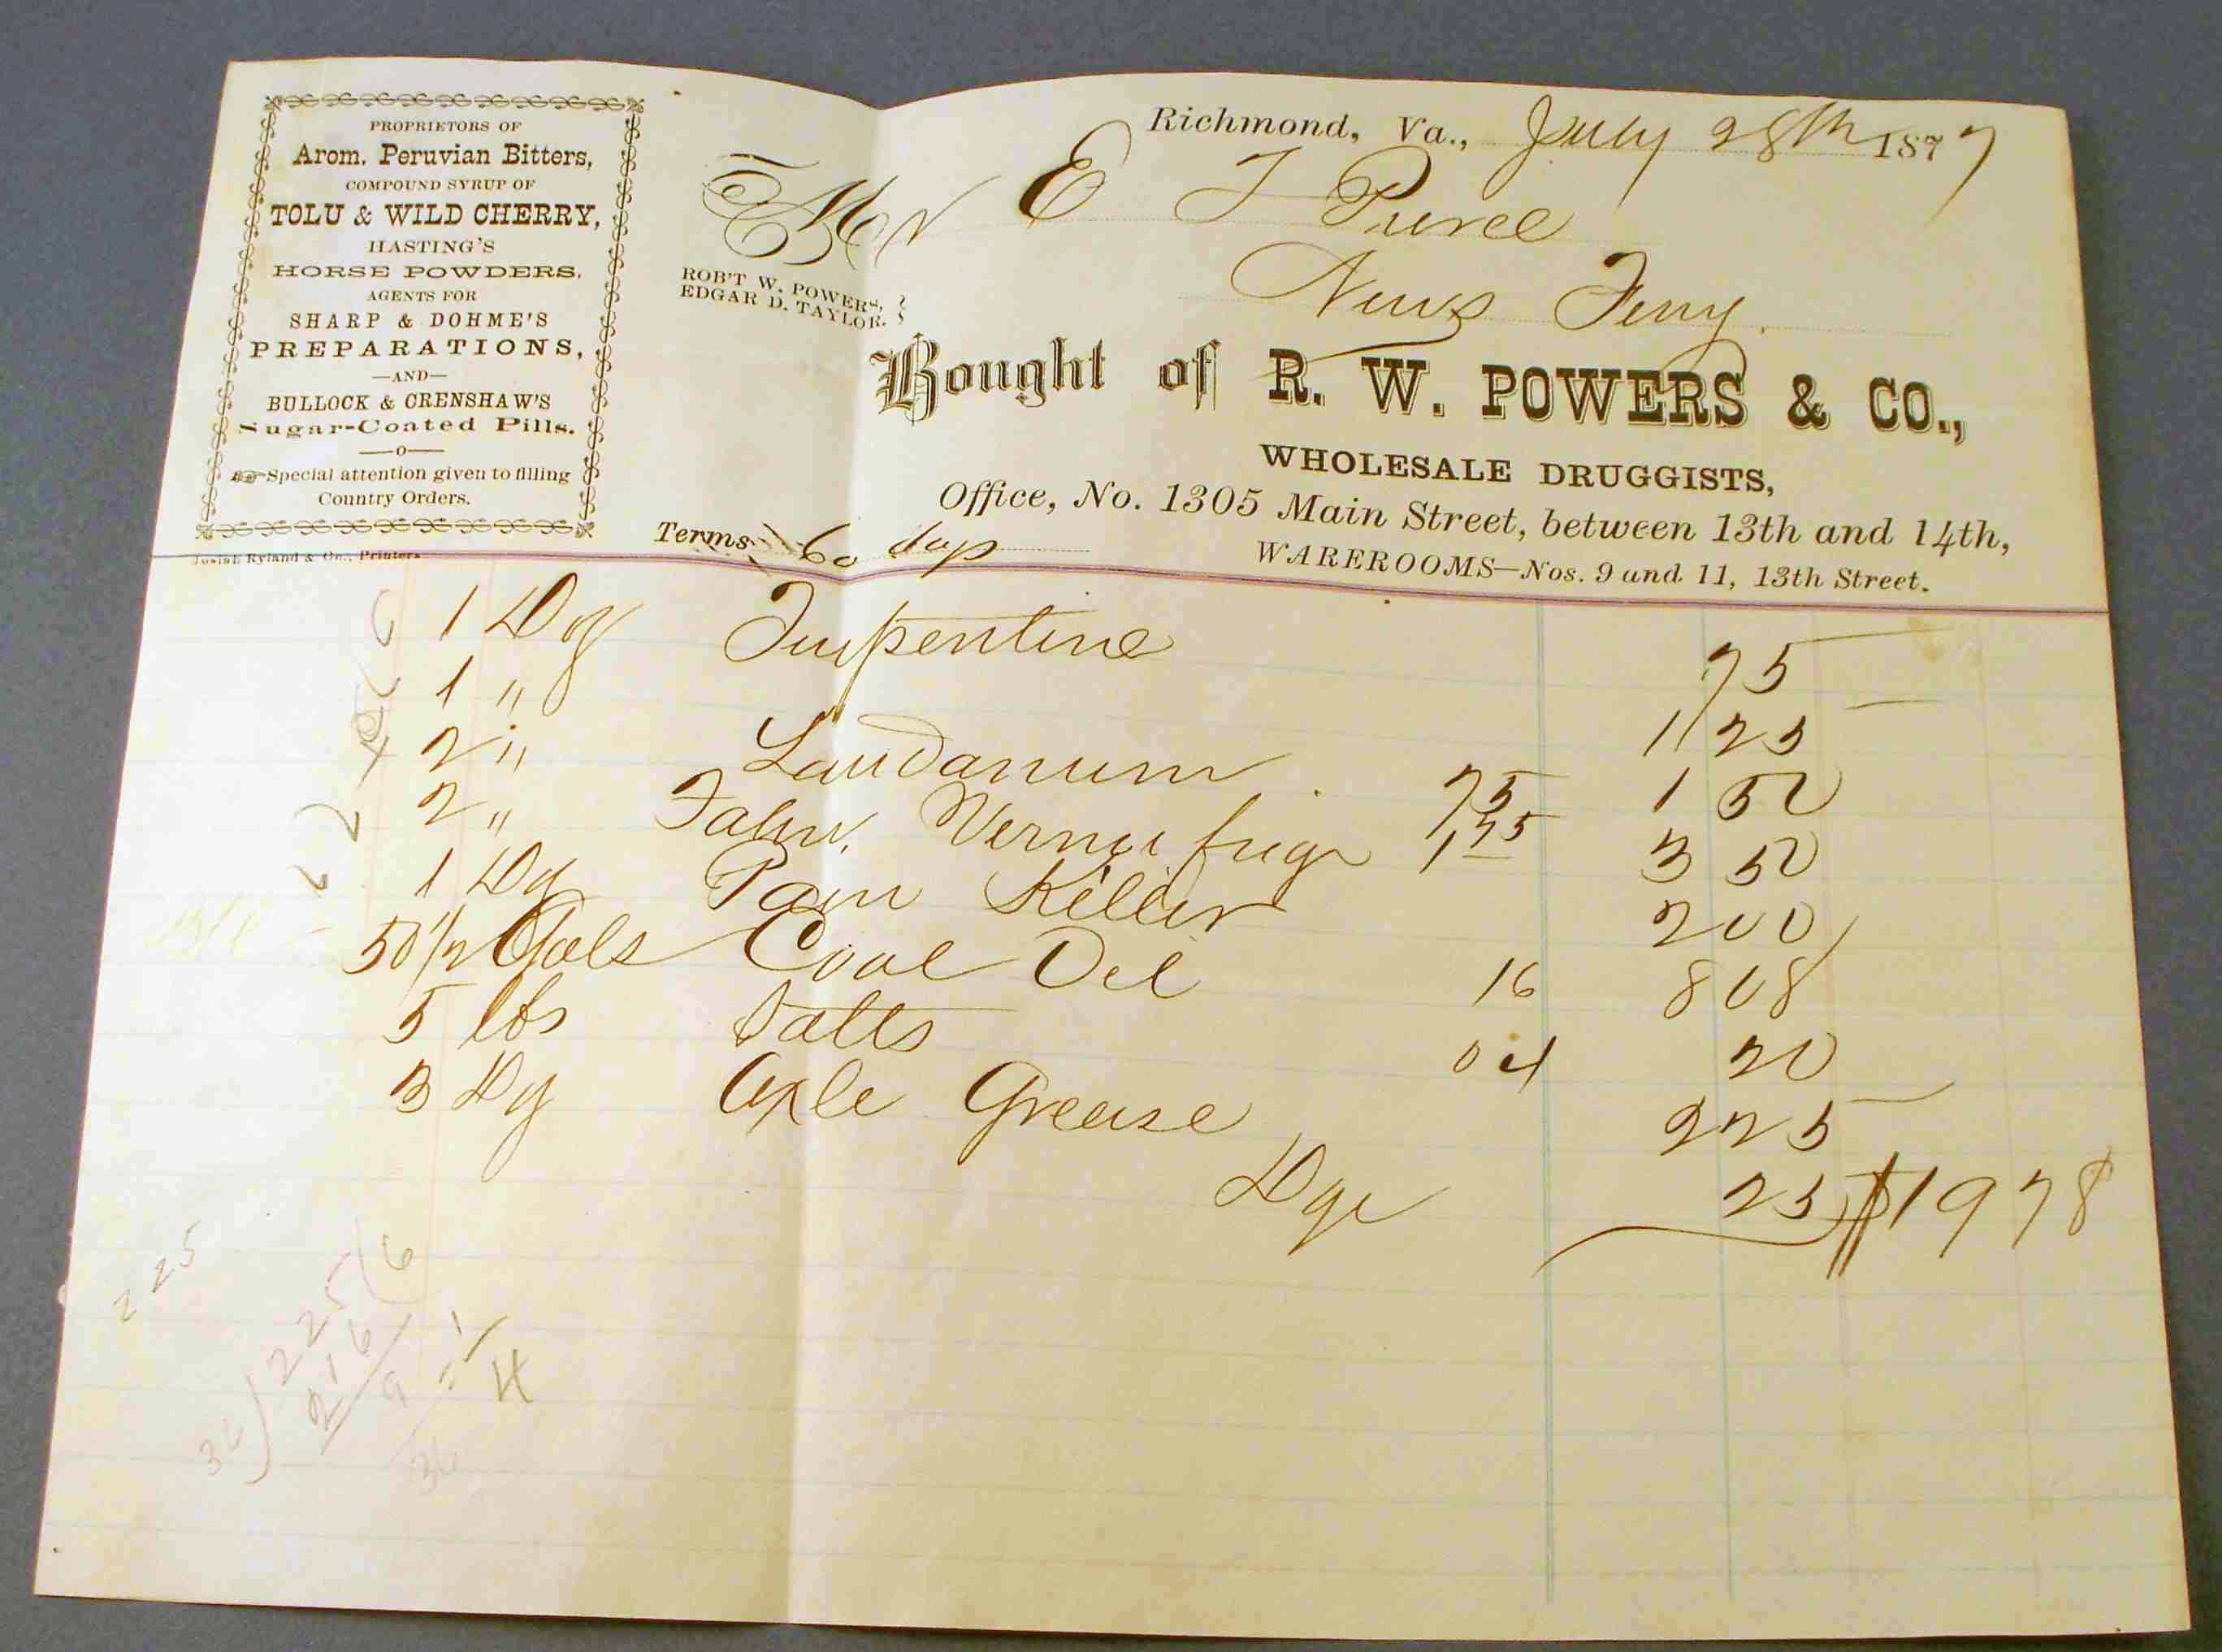 PROPRIETORS OF
Arom. Peruvian Bitters,
COMPOUND SYRUP OF
TOLU & WILD CHERRY,
HASTING'S
HORSE POWDERS.
AGENTS FOR
SHARP & DOHME'S
PREPARATIONS,
—AND—
BULLOCK & CRENSHAW'S
Sugar-Coated Pills.
—o—
Special attention given to filling
Country Orders.
Josiah Ryland & Co., Printers
Richmond, Va., July 28th 1877
Mr E T Pierce
News Ferry
ROB'T W. POWERS,
EDGAR D. TAYLOR.
Bought of R. W. POWERS & CO.,
WHOLESALE DRUGGISTS,
Office, No. 1305 Main Street, between 13th and 14th,
Terms 60 days
WAREROOMS—Nos. 9 and 11, 13th Street.
1 Dz Turpentine 75
1 " 1 25
2 " Laudanum 75 1 50
2 " Fahn. Vermifuge 1 75 3 50
1 Dz Pain Killer 2 00
50 1/2 Gals Coal Oil 16 8 08
5 lbs Salts 04 20
3 Dz Axle Grease 2 25
Dge 25 $19 78
2 25
36) 225 (6
216
9
36
= 1/4